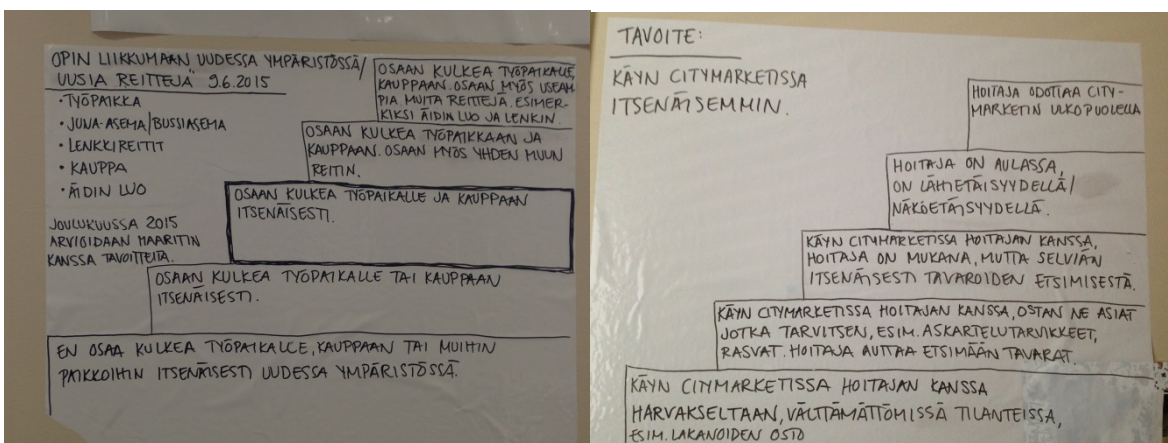 OPIN LIIKKUMAAN UUDESSA YMPÄRISTÖSSÄ/
UUSIA REITTEJÄ" 9.6.2015
• TYÖPAIKKA
• JUNA-ASEMA/BUSSIASEMA
• LENKKIREITIT
• KAUPPA
• ÄIDIN LUO
JOULUKUUSSA 2015
ARVIOIDAAN MAARITIN
KANSSA TAVOITTEITA.
OSAAN KULKEA TYÖPAIKALLE,
KAUPPAAN. OSAAN MYÖS USEAM-
PIA MUITA REITTEJÄ. ESIMER-
KIKSI ÄIDIN LUO JA LENKIN.
OSAAN KULKEA TYÖPAIKKAAN JA
KAUPPAAN. OSAAN MYÖS YHDEN MUUN
REITIN.
OSAAN KULKEA TYÖPAIKALLE JA KAUPPAAN
ITSENÄISESTI.
OSAAN KULKEA TYÖPAIKALLE TAI KAUPPAAN
ITSENÄISESTI.
EN OSAA KULKEA TYÖPAIKALLE, KAUPPAAN TAI MUIHIN
PAIKKOIHIN ITSENÄISESTI UUDESSA YMPÄRISTÖSSÄ.
TAVOITE:
KÄYN CITYMARKETISSA
ITSENÄISEMMIN.
HOITAJA ODOTTAA CITY-
MARKETIN ULKOPUOLELLA
HOITAJA ON AULASSA,
ON LÄHIETÄISYYDELLÄ/
NÄKÖETÄISYYDELLÄ.
KÄYN CITYMARKETISSA HOITAJAN KANSSA,
HOITAJA ON MUKANA, MUTTA SELVIÄN
ITSENÄISESTI TAVAROIDEN ETSIMISESTÄ.
KÄYN CITYMARKETISSA HOITAJAN KANSSA, OSTAN NE ASIAT
JOTKA TARVITSEN, ESIM. ASKARTELUTARVIKKEET,
RASVAT. HOITAJA AUTTAA ETSIMÄÄN TAVARAT.
KÄYN CITYMARKETISSA HOITAJAN KANSSA
HARVAKSELTAAN, VÄLTTÄMÄTTÖMISSÄ TILANTEISSA,
ESIM. LAKANOIDEN OSTO